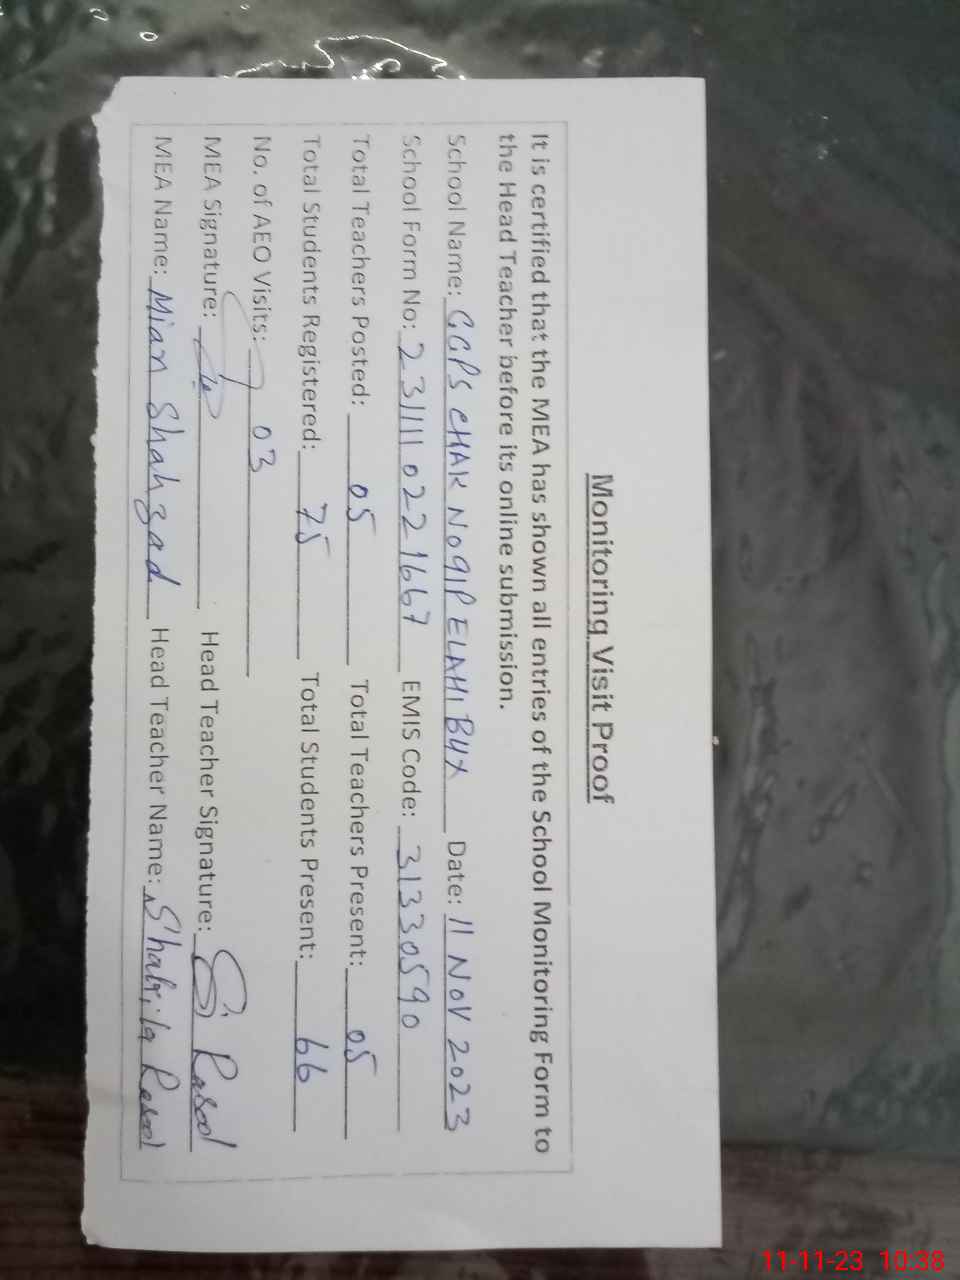 Monitoring Visit Proof
It is certified that the MEA has shown all entries of the School Monitoring Form to
the Head Teacher before its online submission.
School Name: GGPS CHAK NO 91P ELAHI BUX Date: 11 NOV 2023
School Form No: 231111 0221667 EMIS Code: 31330590
Total Teachers Posted: 05 Total Teachers Present: 05
Total Students Registered: 75 Total Students Present: 66
No. of AEO Visits: 03
MEA Signature: Head Teacher Signature: S Rasool
MEA Name: Mian Shahzad Head Teacher Name: Rasool
11-11-23 10:38